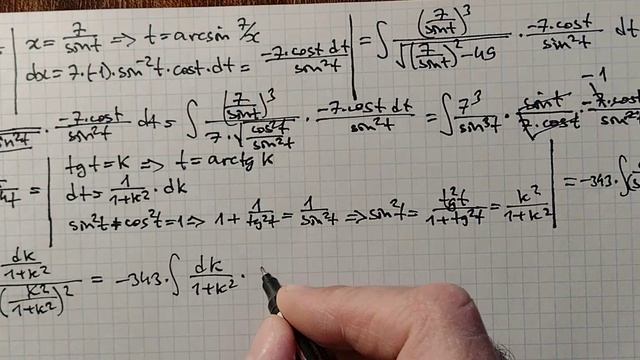 x = 7/sint ⟹ t = arcsin 7/x
dx = 7·(-1)·sin⁻²t·cost·dt = -7·cost dt/sin²t
= ∫ (7/sint)³/√((7/sint)² - 49) · -7·cost/sin²t dt
· -7·cost/sin²t dt = ∫ (7/sint)³/(7·√(cos²t/sin²t)) · -7·cost dt/sin²t = ∫ 7³/sin³t · sint/(7·cost) · -7·cost/sin²t -1
= | tgt = k ⟹ t = arctg k
dt = 1/(1+k²) · dk
sin²t + cos²t = 1 ⟹ 1 + 1/tg²t = 1/sin²t ⟹ sin²t = tg²t/(1+tg²t) = k²/(1+k²)
= -343·∫
dk/(1+k²)/(k²/(1+k²))² = -343·∫ dk/(1+k²) ·